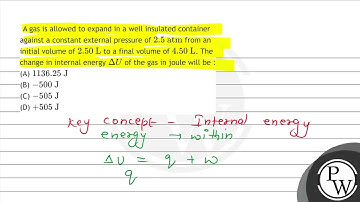 A gas is allowed to expand in a well insulated container
against a constant external pressure of 2.5 atm from an
initial volume of 2.50 L to a final volume of 4.50 L. The
change in internal energy ΔU of the gas in joule will be :
(A) 1136.25 J
(B) −500 J
(C) −505 J
(D) +505 J
Key concept - Internal energy
energy → within
ΔU = q + w
q
PW